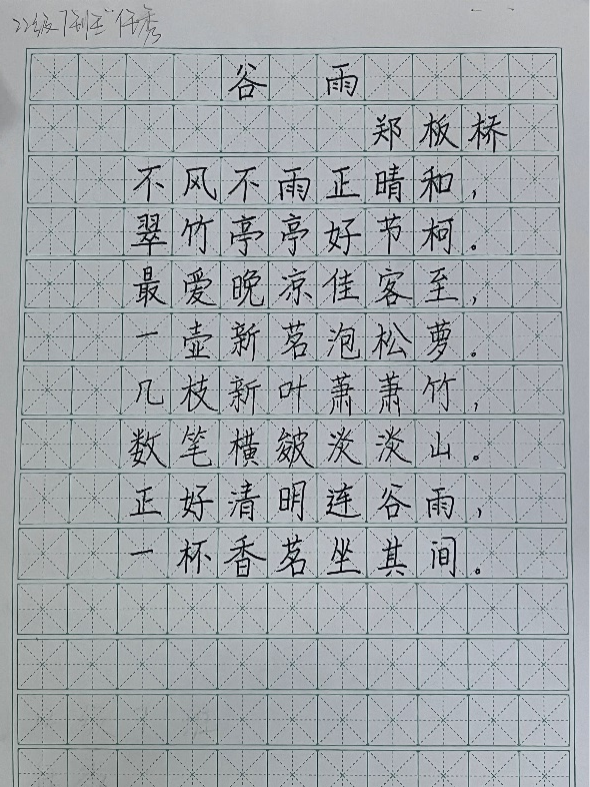 22级
谷雨
郑板桥
不风不雨正晴和，
翠竹亭亭好节柯。
最爱晚凉佳客至，
一壶新茗泡松萝。
几枝新叶萧萧竹，
数笔横皴淡淡山。
正好清明连谷雨，
一杯香茗坐其间。